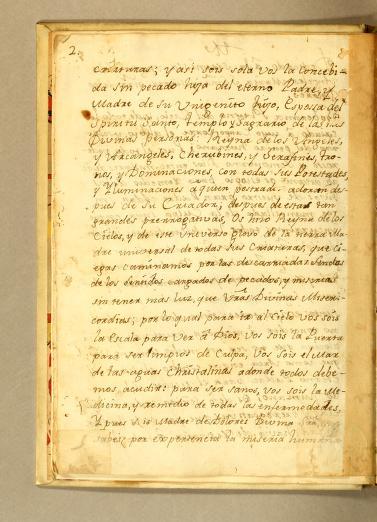 2
criaturas; y asi sois sola vos la Concebi-
da sin pecado hija del eterno Padre, y
Madre de su Unigenito hijo, Esposa del
Spiritu Santo, templo y Sagrario de las tres
Divinas personas: Reyna de los Angeles,
y Arcangeles, Cherubines, y Serafines, tro-
nos, y Dominaciones, con todas sus Potestades,
y Yluminaciones a quien postrados adoran des-
pues de su Criador, despues de estas tan
grandes prerrogativas, Os hizo Reyna de los
Cielos, y de este universo globo de la tierra Ma-
dre universal de todas sus Criaturas, que Ci-
egas caminamos por las descarriadas Sendas
de los sentidos cargados de pecados, y miserias
sin tener mas luz, que Vras Divinas Miseri-
cordias; por lo qual para ir al Cielo vos sois
la Escala para Ver a Dios, Vos sois la Puerta
para ser limpios de Culpa, Vos sois el Mar
de las aguas Christalinas adonde todos debe-
mos, acudir: para ser sanos, vos sois la Me-
dicina, y remedio de todas las enfermedades,
Y pues Madre de Dolores Divina
sabeis por experiencia la miseria humana